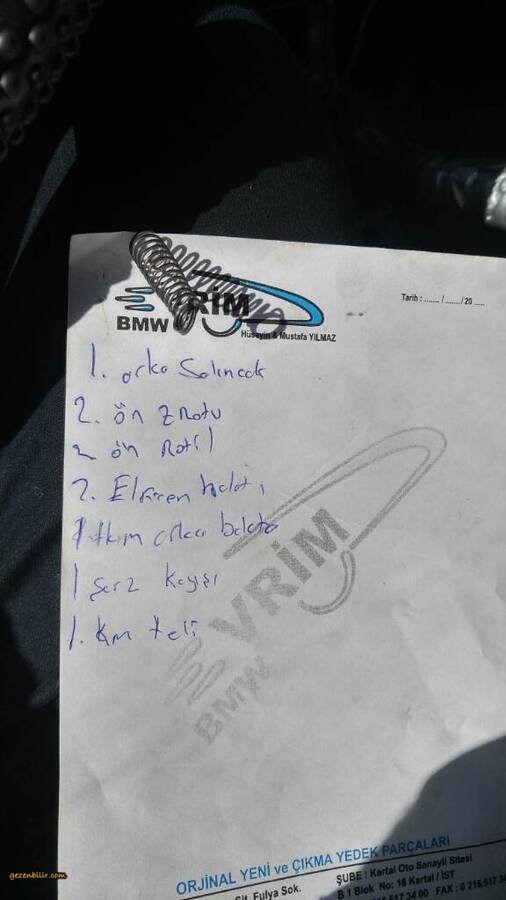 Tarih : ....... / ......./ 20 .....
VRİM
BMW
Hüseyin & Mustafa YILMAZ
1. arka Salıncak
2. ön Z Rotu
2 ön Rotil
2. Elfiren halatı
1 tkım arka balata
1 şarz kayışı
1. Km teli
EVRİM
BMW
ORJİNAL YENİ ve ÇIKMA YEDEK PARÇALARI
Sit. Fulya Sok.
ŞUBE : Kartal Oto Sanayii Sitesi
B 1 Blok No: 18 Kartal / İST
517 34 00 FAX : 0 216 517 34
gezenbilir.com